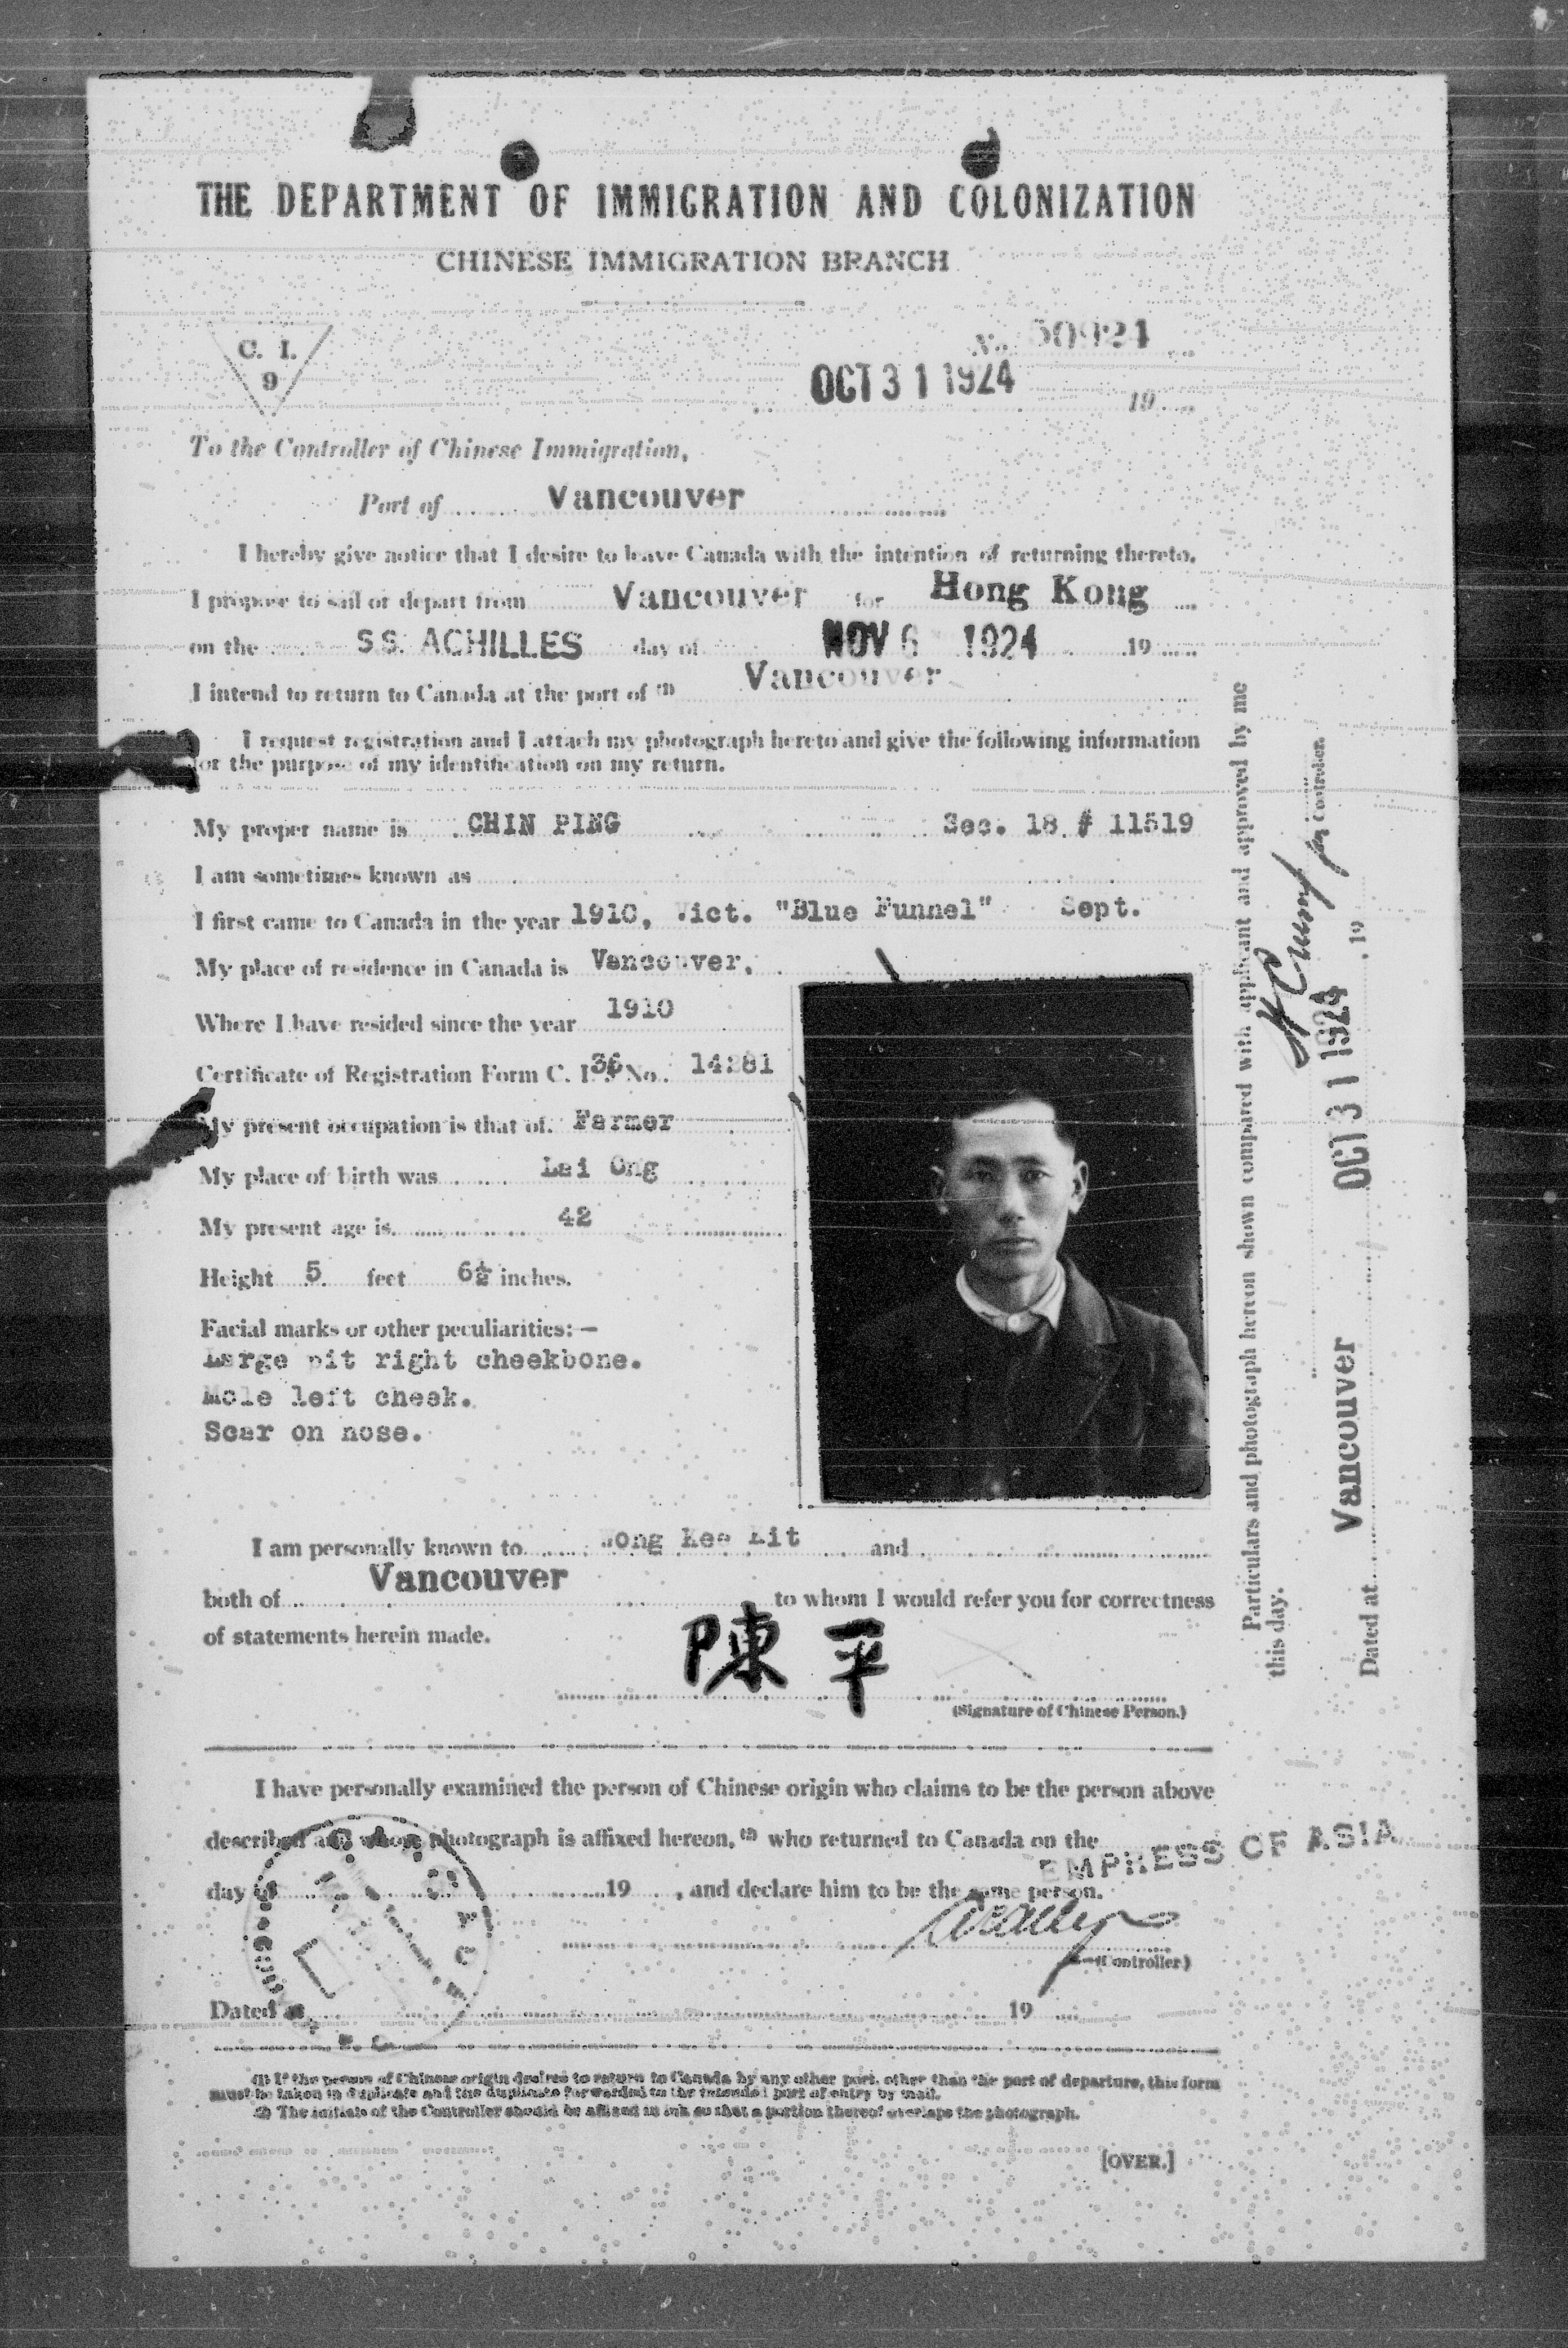 THE DEPARTMENT OF IMMIGRATION AND COLONIZATION
CHINESE IMMIGRATION BRANCH
C. I.
9
No. 50924
OCT 31 1924 19
To the Controller of Chinese Immigration,
Port of Vancouver
I hereby give notice that I desire to leave Canada with the intention of returning thereto.
I propose to sail or depart from Vancouver for Hong Kong
on the SS. ACHILLES day of NOV 6 1924 19
I intend to return to Canada at the port of (1) Vancouver
I request registration and I attach my photograph hereto and give the following information
for the purpose of my identification on my return.
My proper name is CHIN PING Sec. 18 # 11519
I am sometimes known as
I first came to Canada in the year 1910, Vict. "Blue Funnel" Sept.
My place of residence in Canada is Vancouver,
Where I have resided since the year 1910
Certificate of Registration Form C. I. 36 No.
My present occupation is that of. Farmer
My place of birth was Lai Ong
My present age is 42
Height 5 feet 6½ inches.
Facial marks or other peculiarities:—
Large pit right cheekbone.
Mole left cheek.
Scar on nose.
I am personally known to Kee and
both of Vancouver to whom I would refer you for correctness
of statements herein made.
陳平
(Signature of Chinese Person.)
I have personally examined the person of Chinese origin who claims to be the person above
described and whose photograph is affixed hereon, (2) who returned to Canada on the
EMPRESS OF ASIA
day of 19 , and declare him to be the same person.
(Controller)
Dated at 19
(1) If the person of Chinese origin desires to return to Canada by any other port, other than the port of departure, this form
must be taken in duplicate and the duplicate forwarded to the intended port of entry by mail.
(2) The initials of the Controller should be affixed in ink so that a portion thereof overlaps the photograph.
[OVER.]
Particulars and photograph hereon shown compared with applicant and approved by me
this day.
for controller.
Dated at Vancouver OCT 31 1924 19